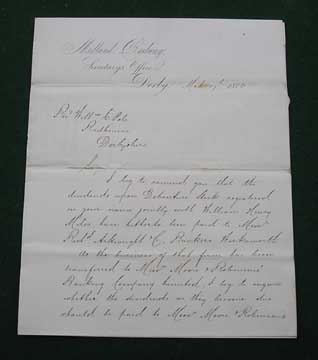 Midland Railway,
Secretary's Office
Derby 1880
Revd Wm C Pole
Radbourne
Derbyshire
Sir,
I beg to remind you that the
dividends upon Debenture Stock registered
in your name jointly with William Henry
have hitherto been paid to Messrs
Richd Arkwright & Co, Bankers Wirksworth
As the business of that firm has been
transferred to Messrs Moore & Robinsons
Banking Company Limited, I beg to enquire
whether the dividends as they become due
should be paid to Messrs Moore & Robinsons